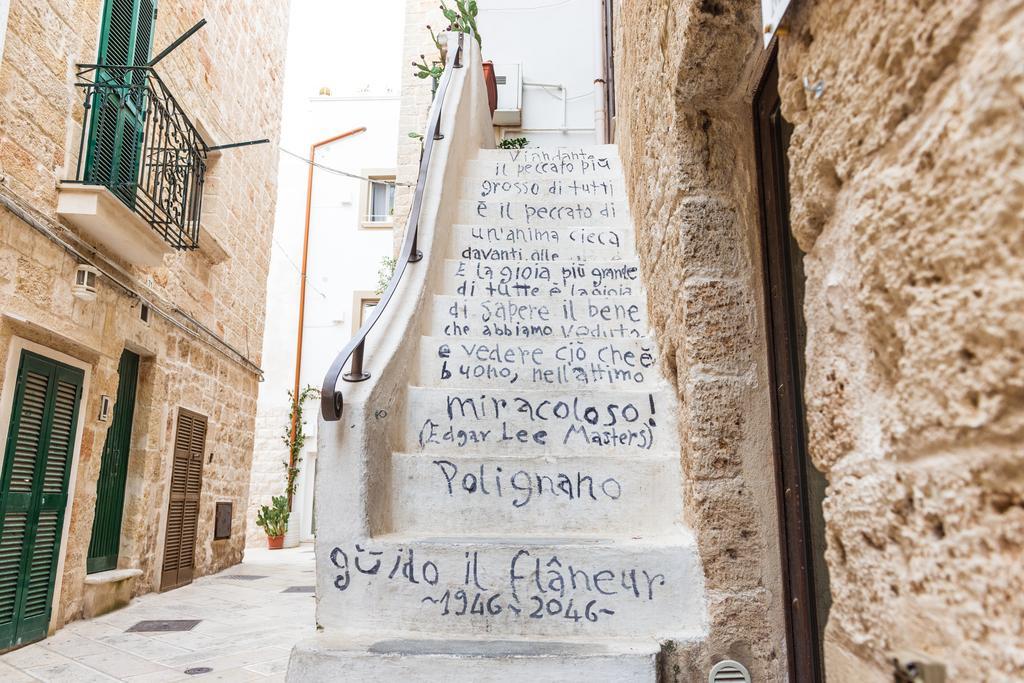 Viandante
il peccato più
grosso di tutti
è il peccato di
un'anima cieca
davanti alle
E la gioia più grande
di tutte è la gioia
di sapere il bene
che abbiamo veduto
e vedere ciò che è
buono, nell'attimo
miracoloso!
(Edgar Lee Masters)
Polignano
güido il flâneur
~1946~2046~